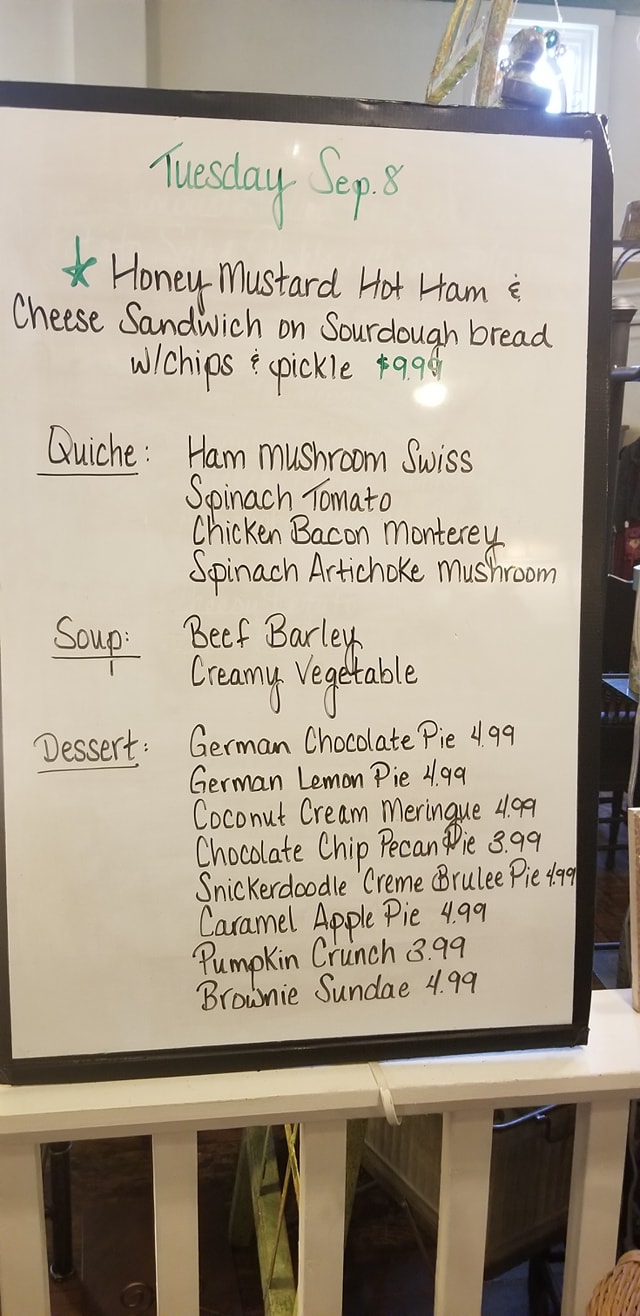 Tuesday Sep. 8
Honey Mustard Hot Ham &
Cheese Sandwich on Sourdough bread
w/chips & pickle $9.99
Quiche: Ham mushroom Swiss
Spinach Tomato
Chicken Bacon Monterey
Spinach Artichoke Mushroom
Soup: Beef Barley
Creamy Vegetable
Dessert: German Chocolate Pie 4.99
German Lemon Pie 4.99
Coconut Cream Meringue 4.99
Chocolate Chip Pecan Pie 3.99
Snickerdoodle Creme Brulee Pie 4.99
Caramel Apple Pie 4.99
Pumpkin Crunch 3.99
Brownie Sundae 4.99